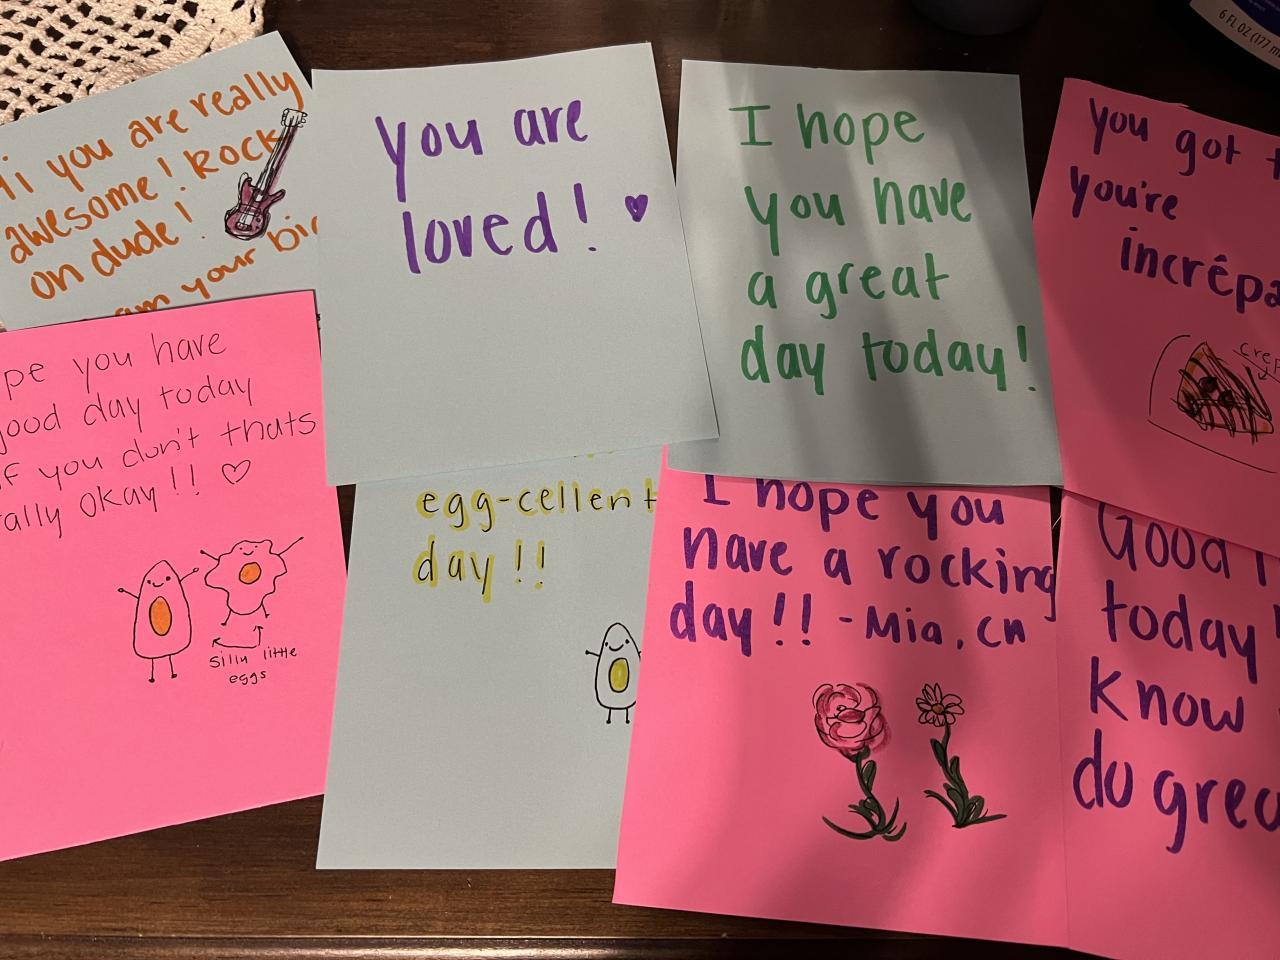 Hi you are really
awesome! Rock
on dude!
am your
you are
loved! ♥
I hope
you have
a great
day today!
you got
you're
incrêpa
crep
you have
good day today
if you don't thats
okay!! ♡
silly little
eggs
egg-cellent
day!!
I hope you
have a rocking
day!! - Mia, CN
Good
today
know
do grea
6 FL OZ (177 m